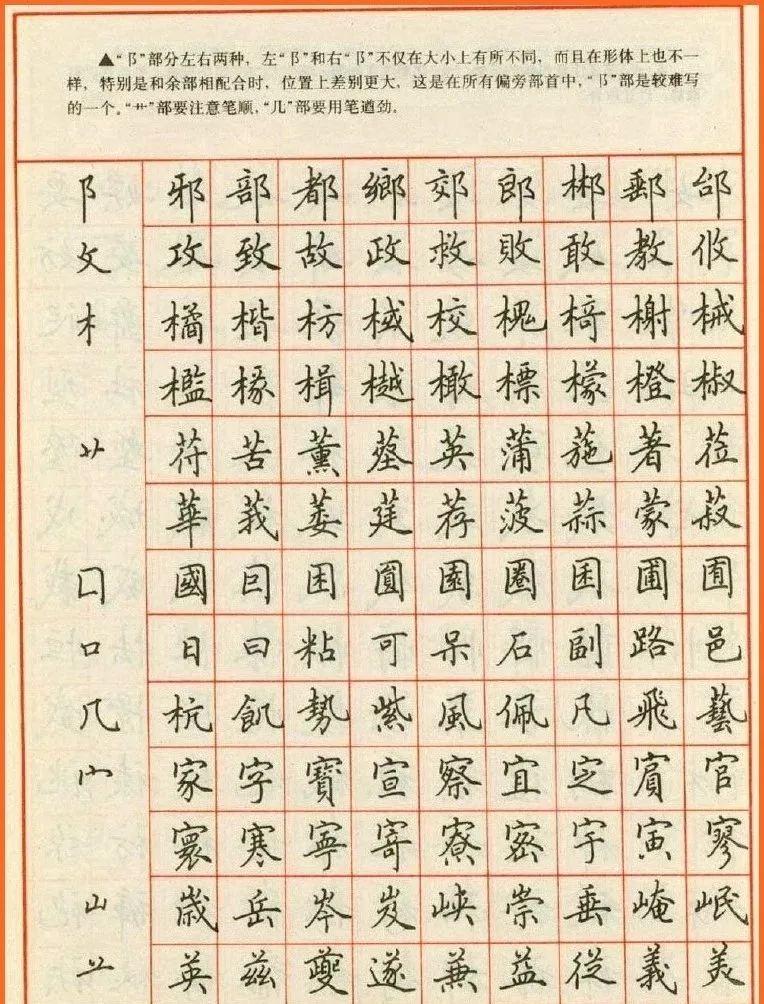 ▲“阝”部分左右两种，左“阝”和右“阝”不仅在大小上有所不同，而且在形体上也不一
样，特别是和余部相配合时，位置上差别更大，这是在所有偏旁部首中，“阝”部是较难写
的一个。“艹”部要注意笔顺，“几”部要用笔遒劲。
阝 邪 部 都 鄉 郊 郎 郴 郵 邰
攵 攻 致 故 政 救 敗 敢 教 攸
木 橘 楷 枋 械 校 槐 椅 榭 械
檻 椽 楫 樾 橄 標 檬 橙 椒
艹 苻 苦 薰 英 蒲 葹 著 莅
華 莪 萎 莛 荐 菠 蒜 蒙 菽
囗 國 回 困 圓 園 圈 困 圃 囿
口 日 曰 粘 可 呆 石 副 路 邑
几 杭 飢 勢 紫 風 佩 凡 飛 藝
宀 家 字 寶 宣 察 宜 定 賓 官
寰 寒 寧 寄 寮 密 宇 寅 寥
山 歲 岳 岑 岌 峽 崇 垂 崦 岷
䒑 英 兹 夔 遂 兼 益 從 義 美